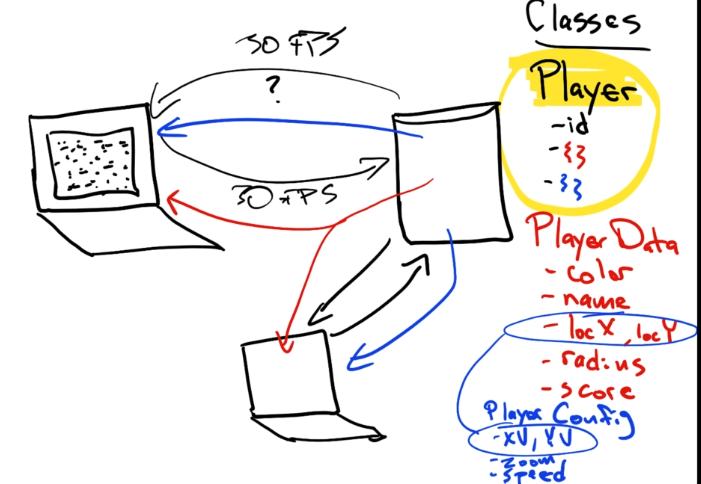 30 FPS
?
30 FPS
Classes
Player
-id
-{}
-{}
Player Data
- color
- name
- locX, locY
- radius
- score
Player Config
- XV, YV
- zoom
- speed